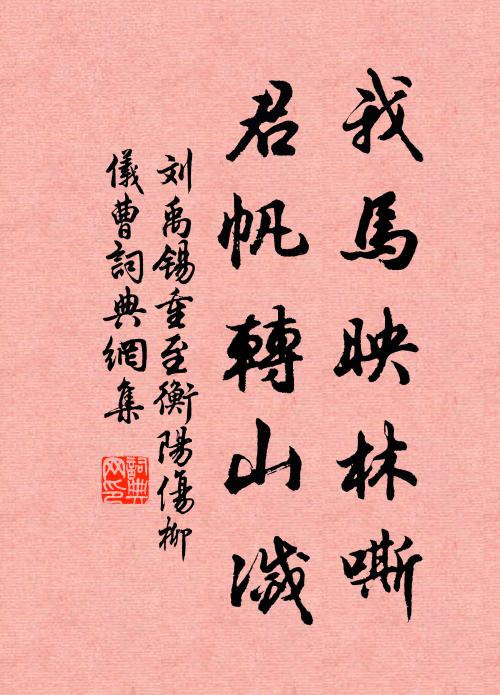 我馬映林嘶
君帆轉山滅
刘禹锡重至衡陽傷柳
儀曹詞典網集
詞典网印